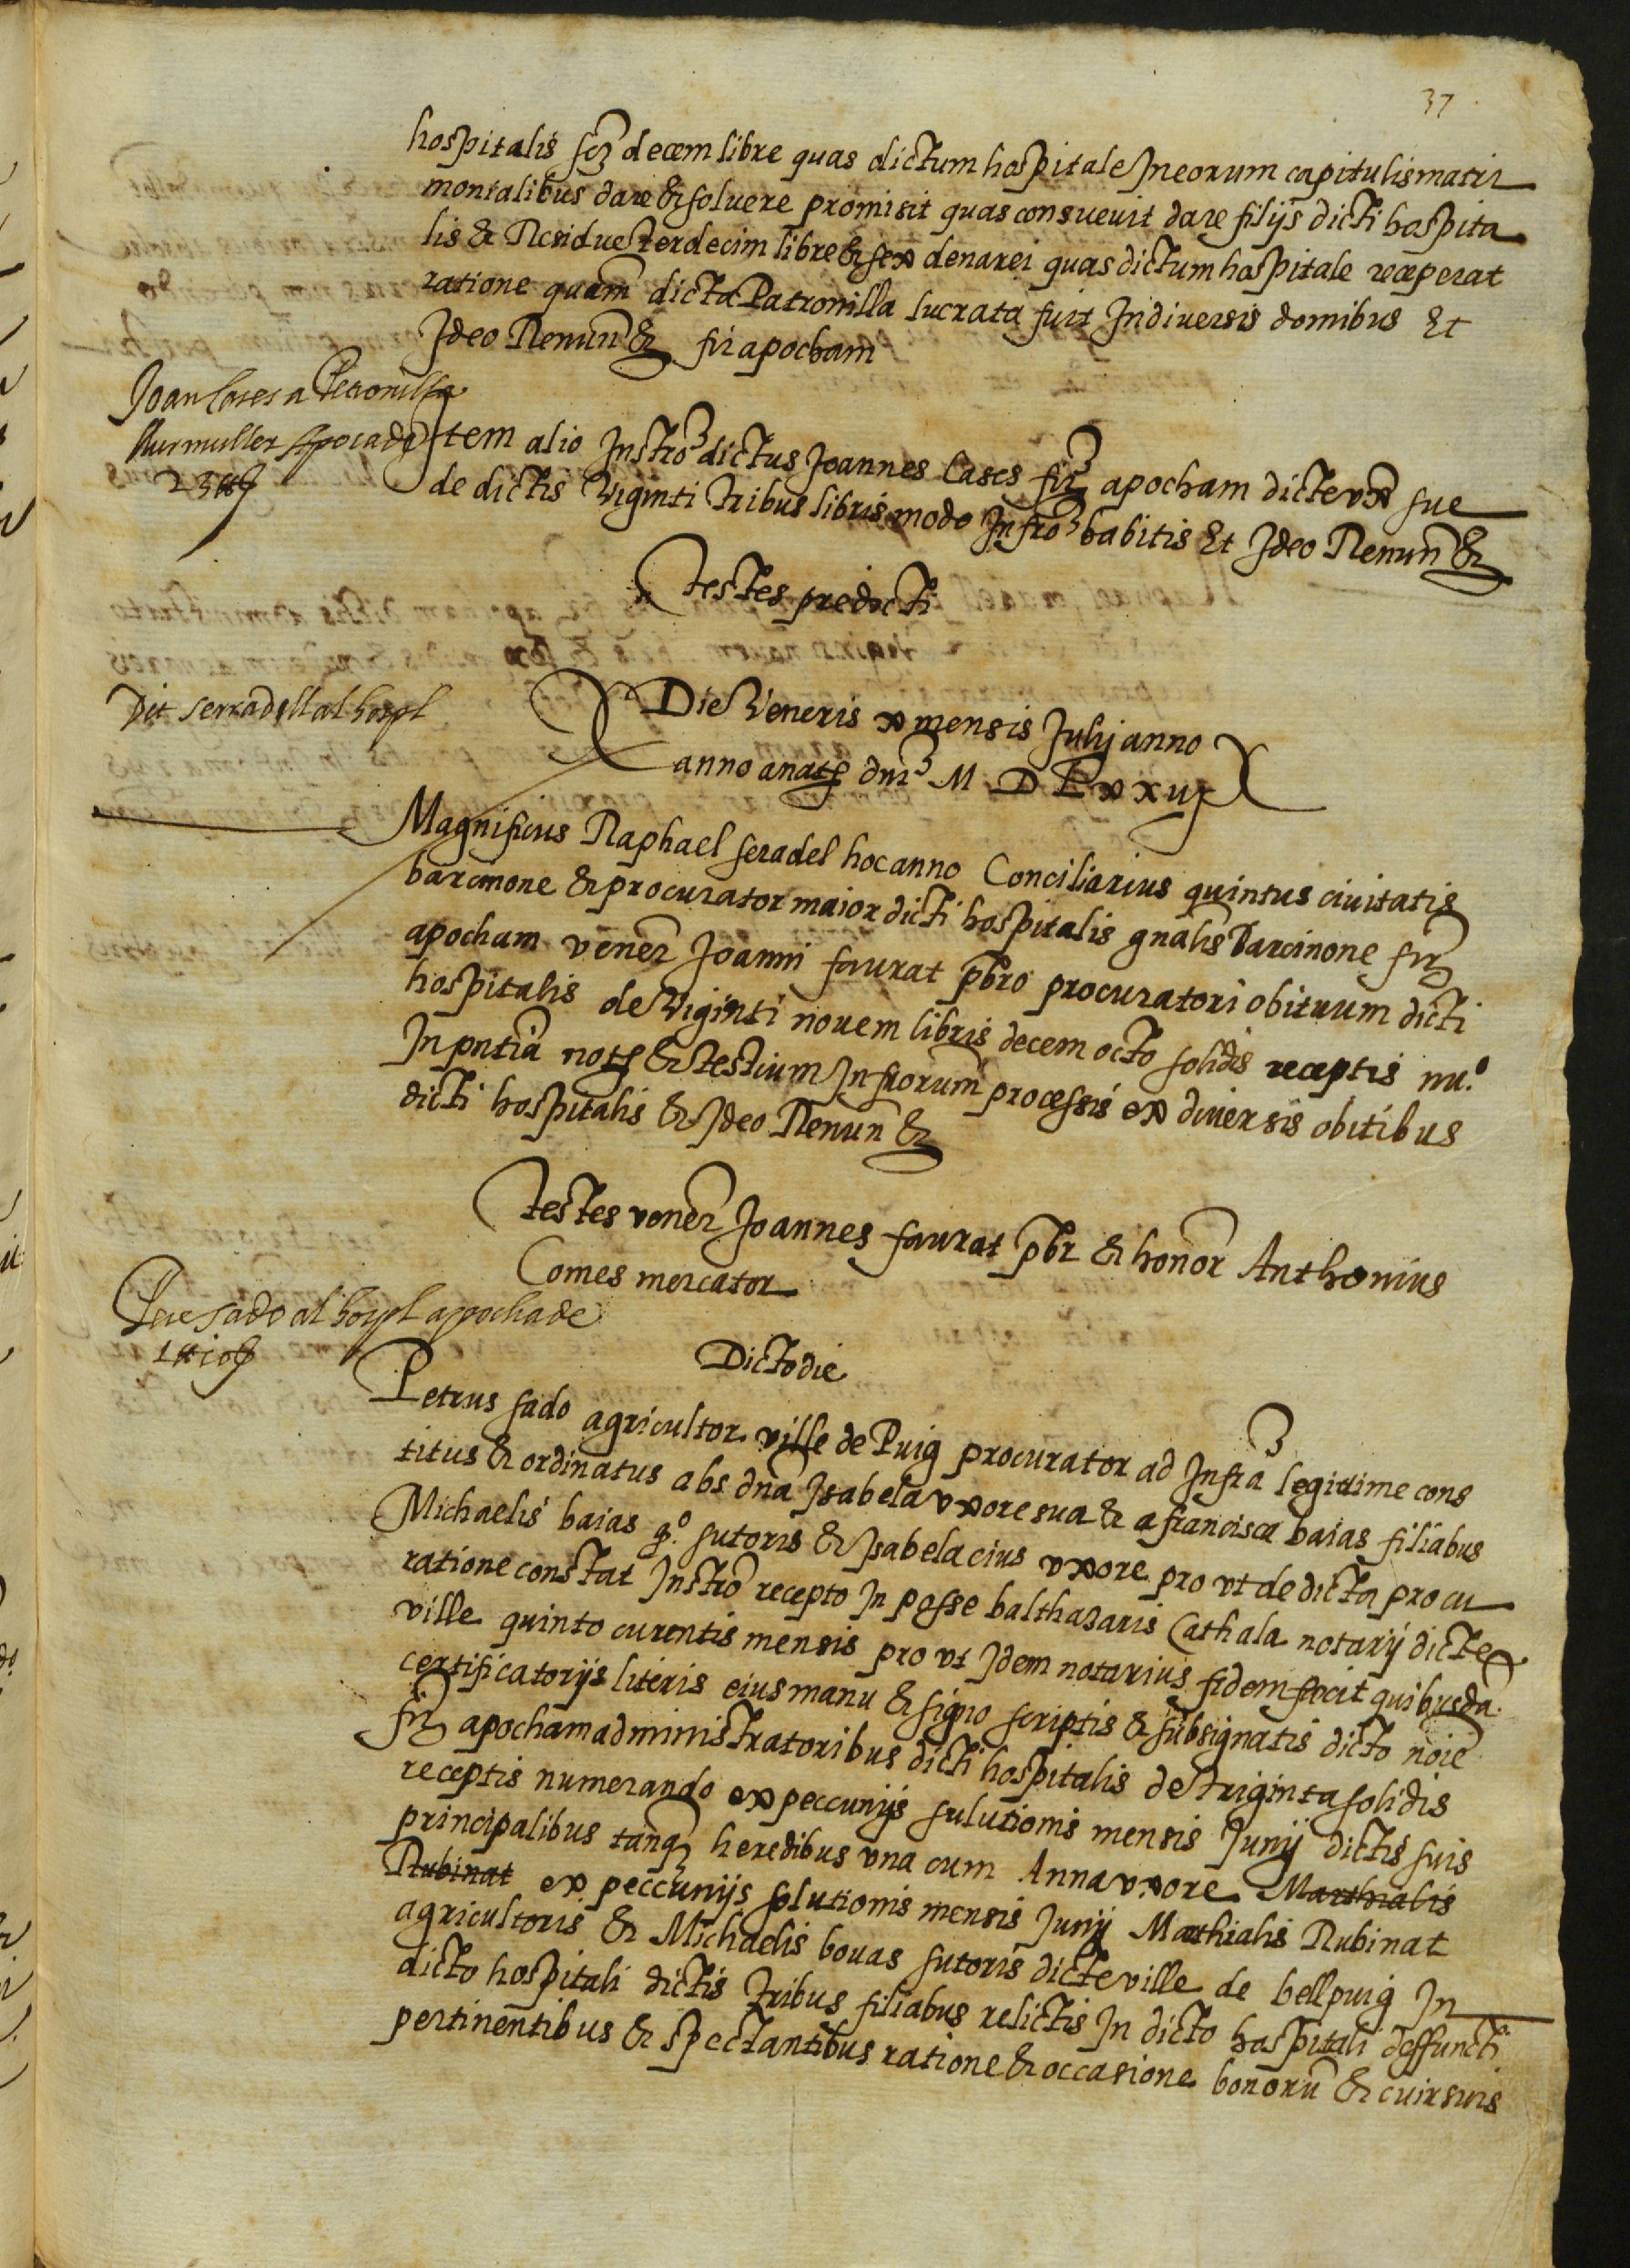 37
hospitalis scz decem libre quas dictum hospitale In eorum capitulis matri
monialibus dare & soluere promisit quas consueuit dare filijs dicti hospita
lis & Residue terdecim libre & sex denarei quas dictum hospitale receperat
ratione quam dicta Patronilla lucrata fuit In diuersis domibus Et
Ideo Renun &c fir apocham
Joan Cases a Petronilla
apoca de
23 ℔
Item alio Instro dictus Joannes Cases fir apocham dicte vx sue
de dictis Viginti tribus libris modo Infro habitis Et Ideo Renun &c
testes predicti
Dit serradell al hospl
Die Veneris x mensis Julij anno
anno a natte dni M D Lxxuj
Magnificus Raphael seradel hoc anno Conciliarius quintus ciuitatis
barcinone & procurator maior dicti hospitalis gnalis Barcinone fir
apocham vener Joanni faurat pbro procuratori obituum dicti
hospitalis de Viginti nouem libris decem octo solidis receptis nu.º
In pntia notte & testium Infrorum processis ex diuersis obitibus
dicti hospitalis & Ideo Renun &c
testes vener Joannes faurat pbr & honor Anthonius
Comes mercator
Pere sado al hospl appocha de
1 ℔ 10 ß
Dicto die
Petrus sado agricultor ville de Puig procurator ad Infra legitime cons
titus & ordinatus abs dna Isabela vxore sua & a francisca baias filiabus
Michaelis baias qº sutoris & Isabela eius vxore pro vt de dicta procu
ratione constat Instro recepto In posse balthazaris Cathala notarij dicte
ville quinto curentis mensis pro vt Idem notarius fidem fecit quibusda
certificatorijs literis eius manu & signo scriptis & subsignatis dicto noie
fir apocham administratoribus dicti hospitalis de triginta solidis
receptis numerando ex peccunijs sulutionis mensis Junij dictis suis
principalibus tanq heredibus vna cum Anna vxore Marthialis
Rubinat ex peccunijs solutionis mensis Junij Marthialis Rubinat
agricultoris & Michaelis bouas sutoris dicte ville de bellpuig In
dicto hospitali dictis tribus filiabus relictis In dicto hospitali deffuncti
pertinentibus & spectantibus ratione & occasione bonoru & cuirsuis